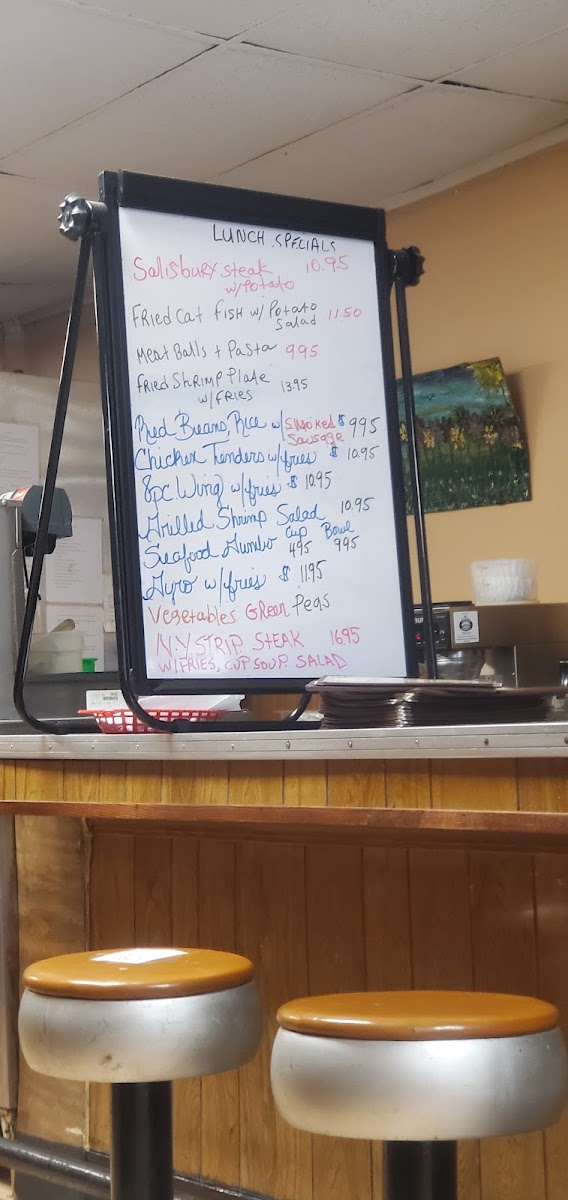 LUNCH SPECIALS
Salisbury steak 10.95
w/Potato
Fried Cat fish w/ Potato
Salad 11.50
Meat Balls + Pasta 995
Fried Shrimp Plate
w/fries 1395
Red Beans, Rice w/ Smoked $ 995
Sausage
Chicken Tenders w/fries $ 10.95
8pc Wing w/fries $ 10.95
Grilled Shrimp Salad 10.95
Seafood Gumbo Cup Bowl
495 995
Gyro w/fries $ 11.95
Vegetables Green Peas
N.Y STRIP STEAK 16.95
W/FRIES, CUP SOUP. SALAD